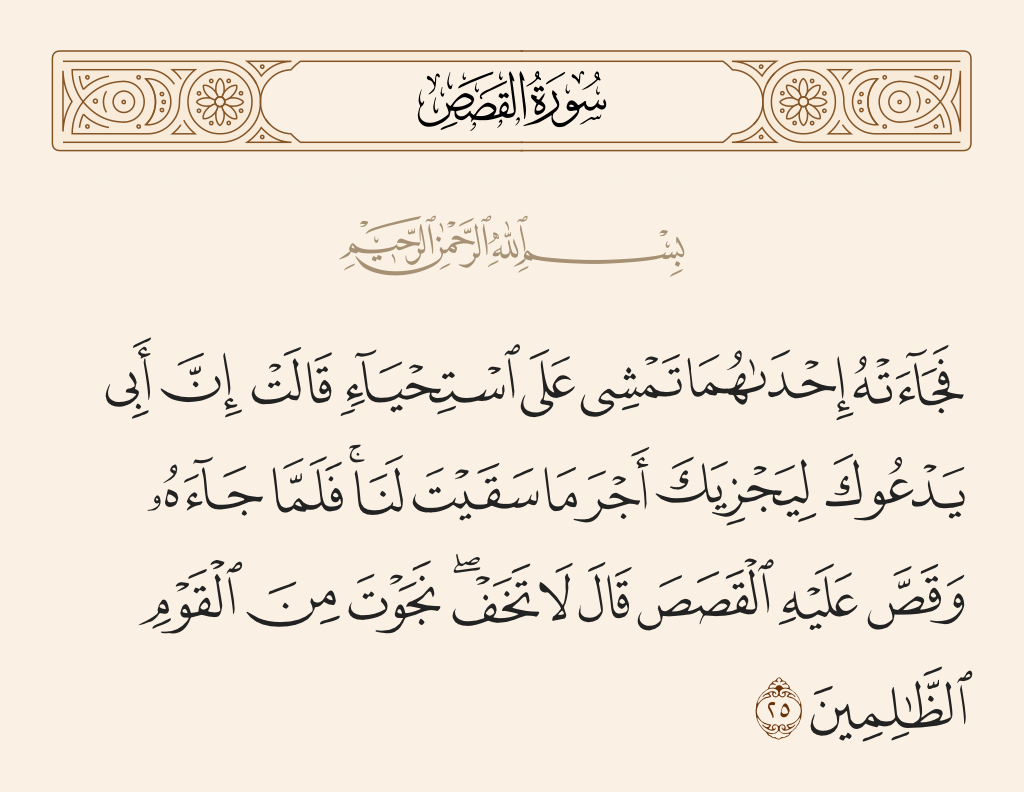 سُورَةُ القَصَصِ
بِسْمِ ٱللَّهِ ٱلرَّحْمَٰنِ ٱلرَّحِيمِ
فَجَآءَتْهُ إِحْدَىٰهُمَا تَمْشِى عَلَى ٱسْتِحْيَآءٍ قَالَتْ إِنَّ أَبِى
يَدْعُوكَ لِيَجْزِيَكَ أَجْرَ مَا سَقَيْتَ لَنَا ۚ فَلَمَّا جَآءَهُۥ
وَقَصَّ عَلَيْهِ ٱلْقَصَصَ قَالَ لَا تَخَفْ ۖ نَجَوْتَ مِنَ ٱلْقَوْمِ
ٱلظَّٰلِمِينَ ٢٥